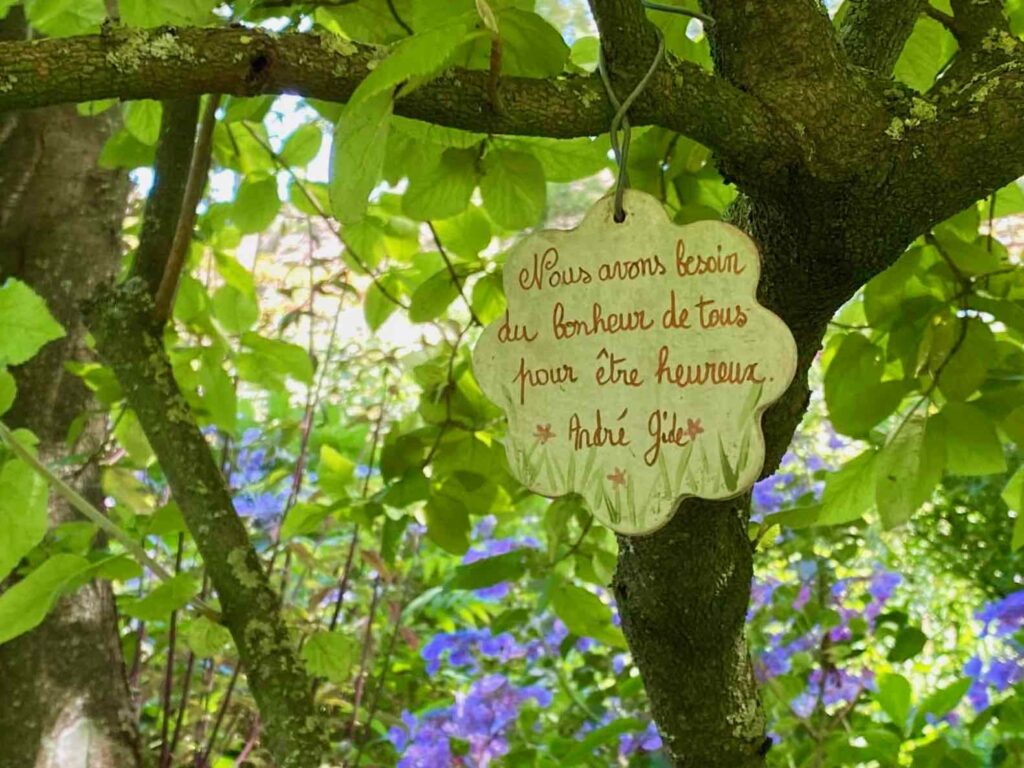 Nous avons besoin
du bonheur de tous
pour être heureux.
André Gide